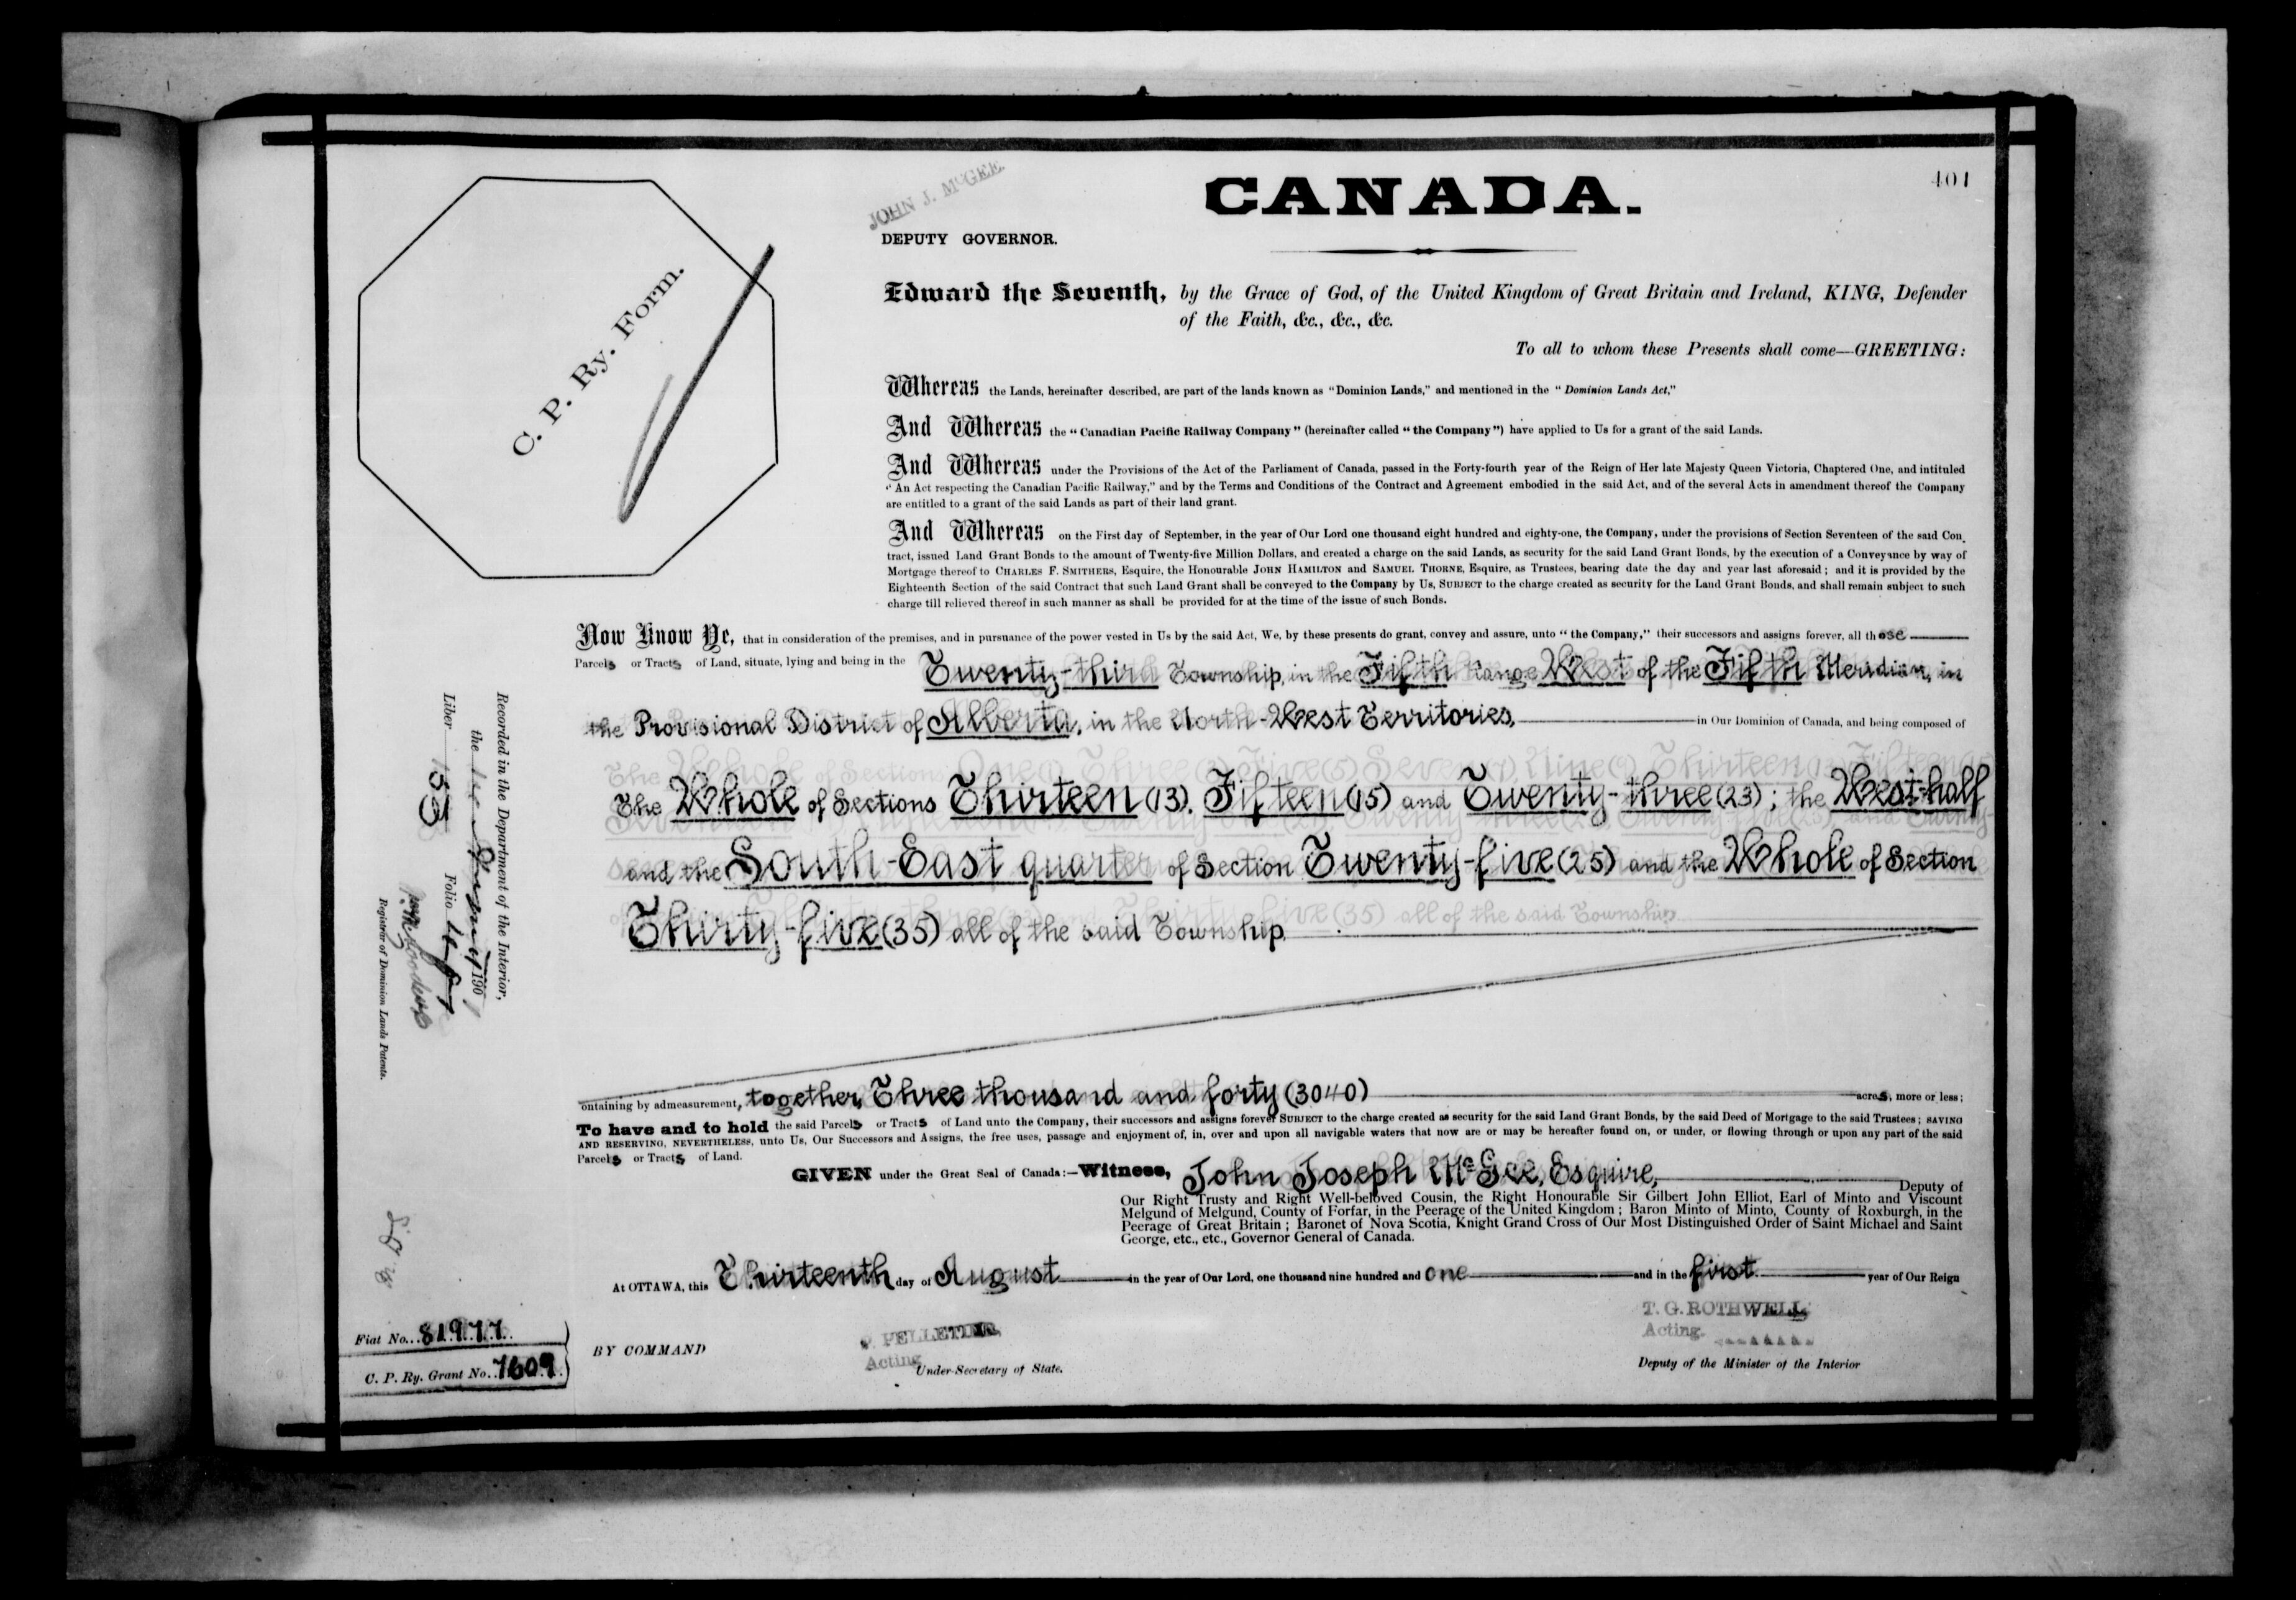 401
JOHN J. McGEE.
CANADA.
DEPUTY GOVERNOR.
C. P. Ry. Form.
Edward the Seventh, by the Grace of God, of the United Kingdom of Great Britain and Ireland, KING, Defender
of the Faith, &c., &c., &c.
To all to whom these Presents shall come—GREETING:
Whereas the Lands, hereinafter described, are part of the lands known as "Dominion Lands," and mentioned in the "Dominion Lands Act,"
And Whereas the "Canadian Pacific Railway Company" (hereinafter called "the Company") have applied to Us for a grant of the said Lands.
And Whereas under the Provisions of the Act of the Parliament of Canada, passed in the Forty-fourth year of the Reign of Her late Majesty Queen Victoria, Chaptered One, and intituled
"An Act respecting the Canadian Pacific Railway," and by the Terms and Conditions of the Contract and Agreement embodied in the said Act, and of the several Acts in amendment thereof the Company
are entitled to a grant of the said Lands as part of their land grant.
And Whereas on the First day of September, in the year of Our Lord one thousand eight hundred and eighty-one, the Company, under the provisions of Section Seventeen of the said Con-
tract, issued Land Grant Bonds to the amount of Twenty-five Million Dollars, and created a charge on the said Lands, as security for the said Land Grant Bonds, by the execution of a Conveyance by way of
Mortgage thereof to CHARLES F. SMITHERS, Esquire, the Honourable JOHN HAMILTON and SAMUEL THORNE, Esquire, as Trustees, bearing date the day and year last aforesaid; and it is provided by the
Eighteenth Section of the said Contract that such Land Grant shall be conveyed to the Company by Us, SUBJECT to the charge created as security for the Land Grant Bonds, and shall remain subject to such
charge till relieved thereof in such manner as shall be provided for at the time of the issue of such Bonds.
Now Know Ye, that in consideration of the premises, and in pursuance of the power vested in Us by the said Act, We, by these presents do grant, convey and assure, unto "the Company," their successors and assigns forever, all those
Parcels or Tracts of Land, situate, lying and being in the Twenty-third Township, in the Fifth Range West of the Fifth Meridian, in
the Provisional District of Alberta, in the North-West Territories, in Our Dominion of Canada, and being composed of
The Whole of Sections Thirteen (13), Fifteen (15) and Twenty-three (23); the West-half
and the South-East quarter of Section Twenty-five (25) and the Whole of Section
Thirty-five (35) all of the said Township.
ontaining by admeasurement, together, Three thousand and forty (3040) acres, more or less;
To have and to hold the said Parcels or Tracts of Land unto the Company, their successors and assigns forever SUBJECT to the charge created as security for the said Land Grant Bonds, by the said Deed of Mortgage to the said Trustees; SAVING
AND RESERVING, NEVERTHELESS, unto Us, Our Successors and Assigns, the free uses, passage and enjoyment of, in, over and upon all navigable waters that now are or may be hereafter found on, or under, or flowing through or upon any part of the said
Parcels or Tracts of Land.
GIVEN under the Great Seal of Canada:—Witness, John Joseph McGee, Esquire, Deputy of
Our Right Trusty and Right Well-beloved Cousin, the Right Honourable Sir Gilbert John Elliot, Earl of Minto and Viscount
Melgund of Melgund, County of Forfar, in the Peerage of the United Kingdom; Baron Minto of Minto, County of Roxburgh, in the
Peerage of Great Britain; Baronet of Nova Scotia, Knight Grand Cross of Our Most Distinguished Order of Saint Michael and Saint
George, etc., etc., Governor General of Canada.
At OTTAWA, this Thirteenth day of August in the year of Our Lord, one thousand nine hundred and one and in the first year of Our Reign
BY COMMAND
P. PELLETIER,
Acting
Under-Secretary of State.
T. G. ROTHWELL,
Acting.
Deputy of the Minister of the Interior
Recorded in the Department of the Interior,
the 190
Liber 153 Folio
Registrar of Dominion Lands Patents.
Fiat No. 81977
C. P. Ry. Grant No. 1609